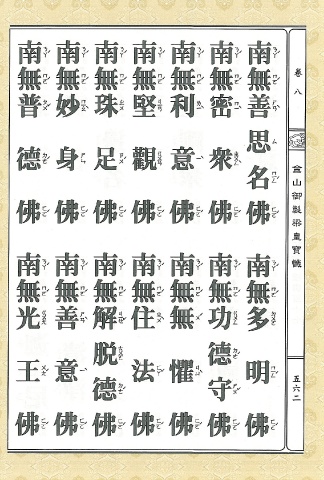 卷八
金山御製梁皇寶懺
五六二
南無善思名佛 南無多明佛
南無密衆佛 南無功德守佛
南無利意佛 南無無懼佛
南無堅觀佛 南無住法佛
南無珠足佛 南無解脫德佛
南無妙身佛 南無善意佛
南無普德佛 南無光王佛